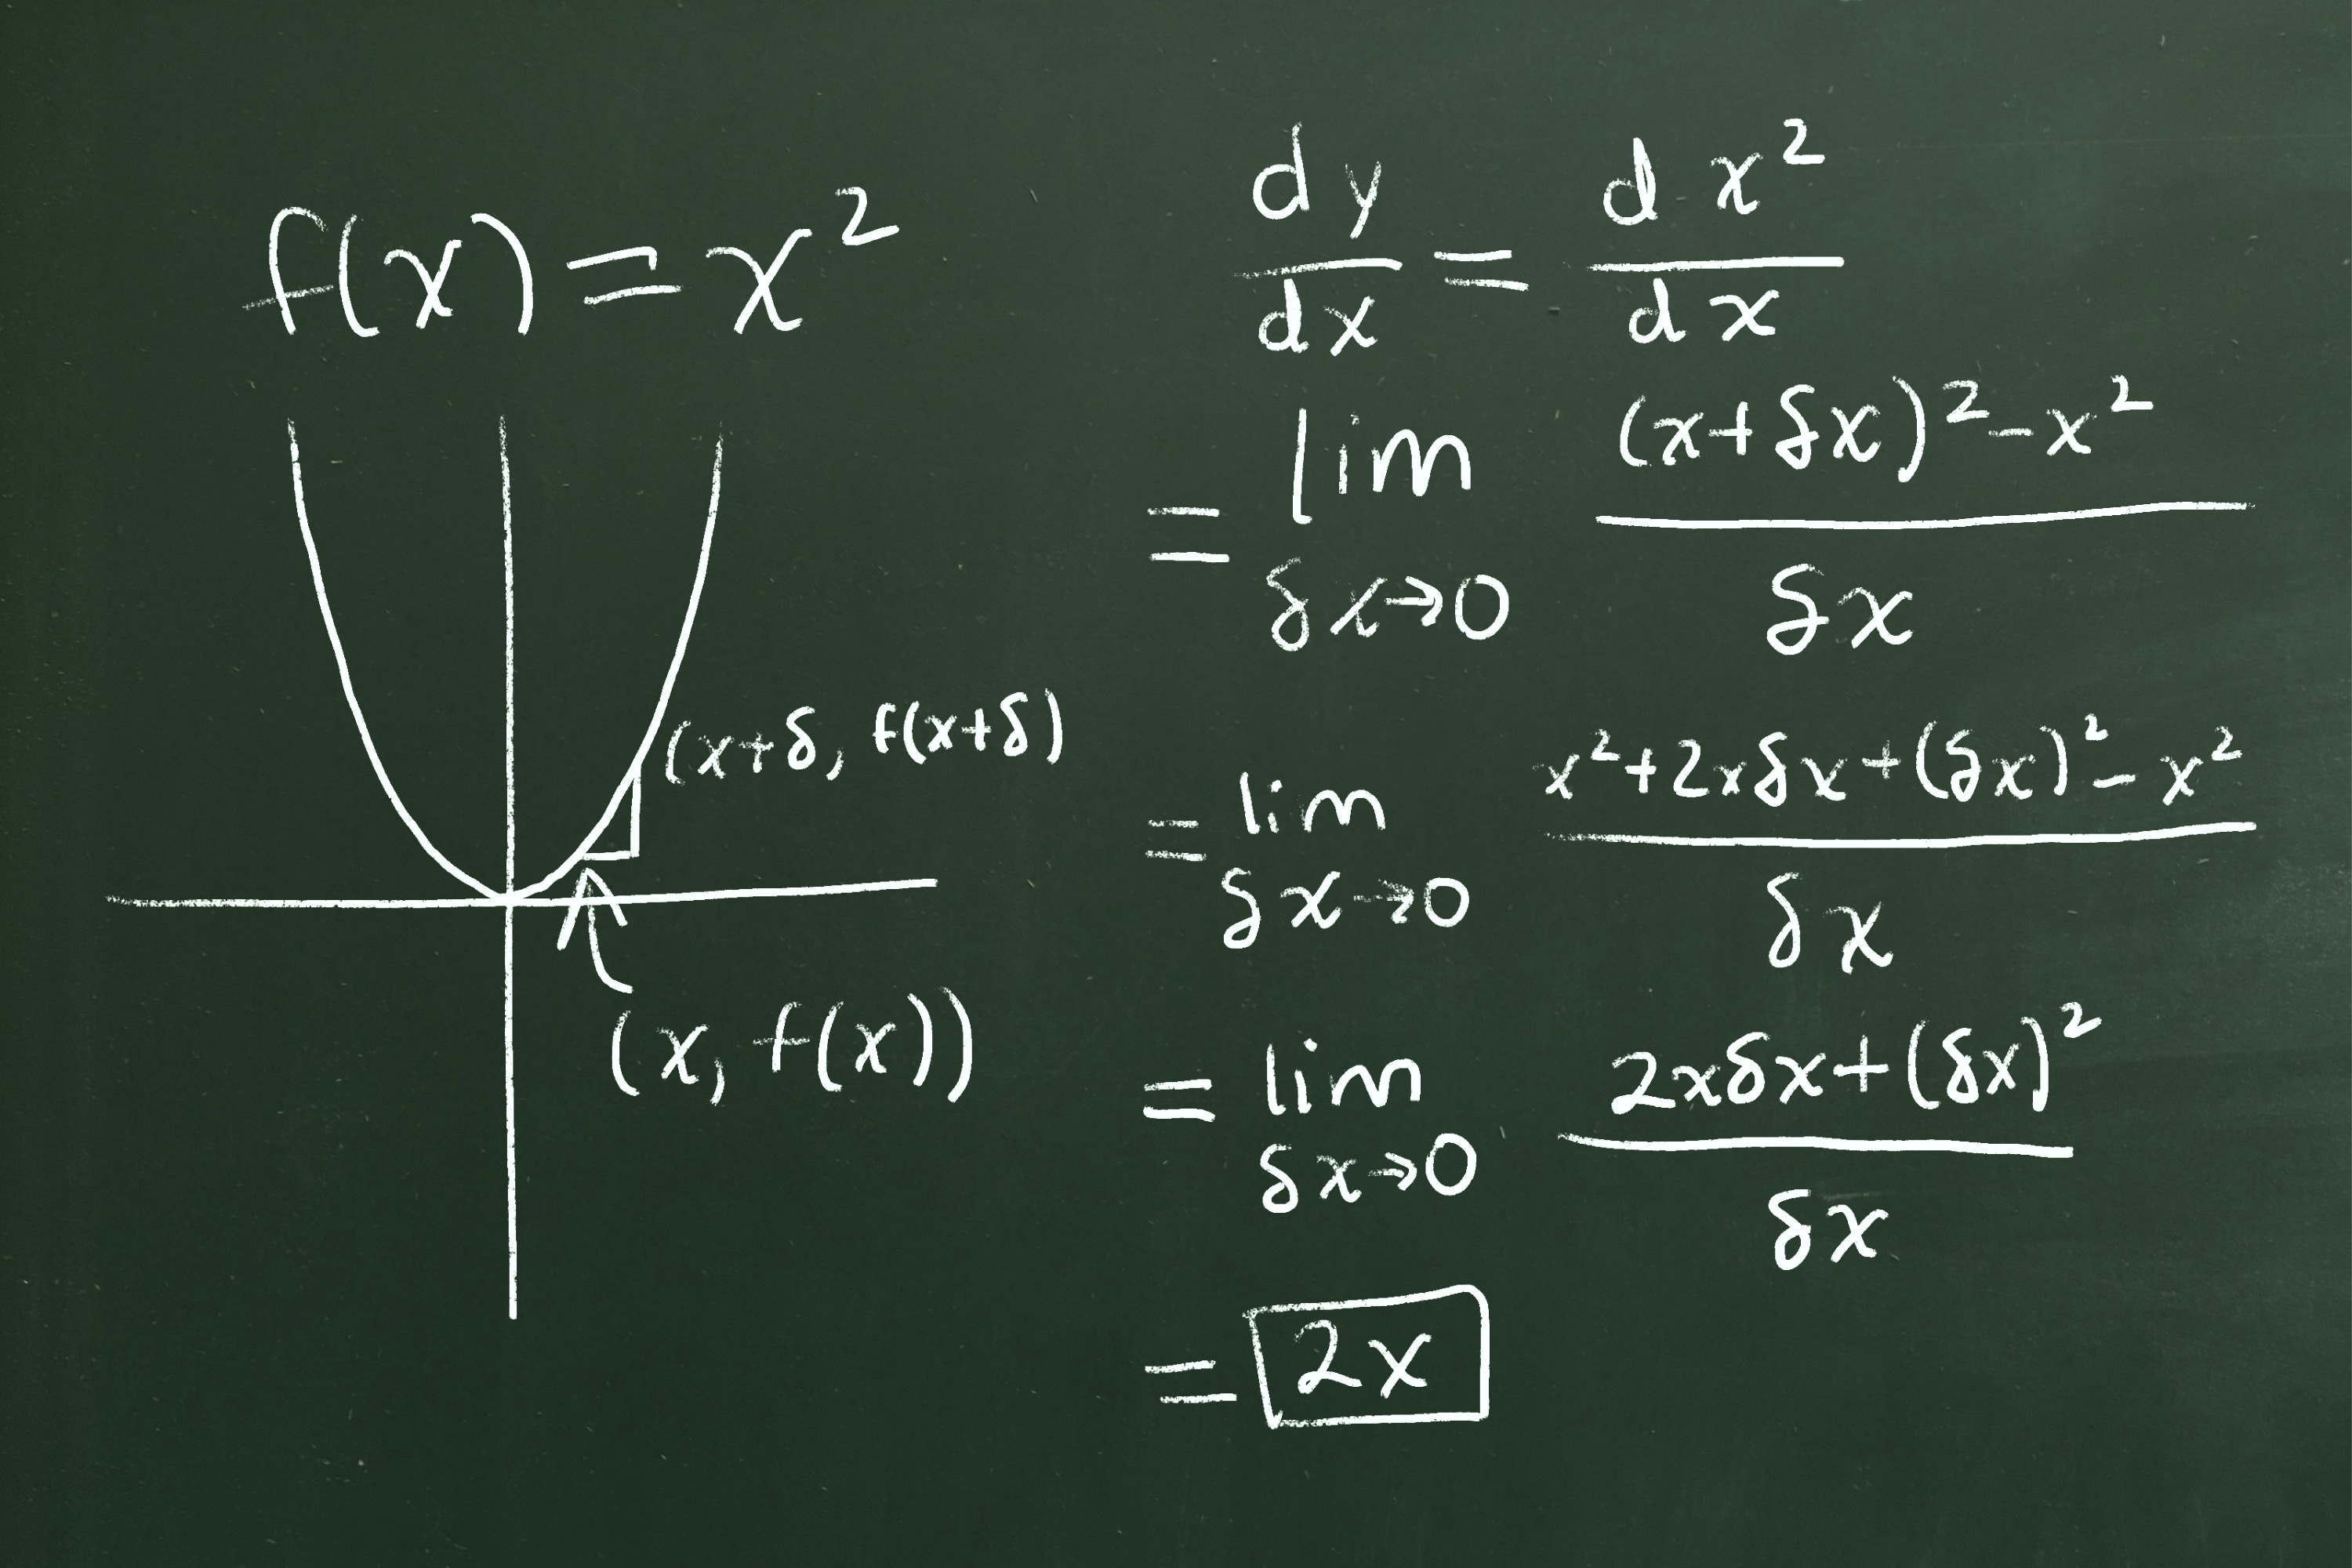 f(x) = x²
(x+δ, f(x+δ)
(x, f(x))
dy/dx = d x²/dx
= lim δx→0 (x+δx)² - x² / δx
= lim δx→0 x²+2xδx+(δx)² - x² / δx
= lim δx→0 2xδx+(δx)² / δx
= 2x